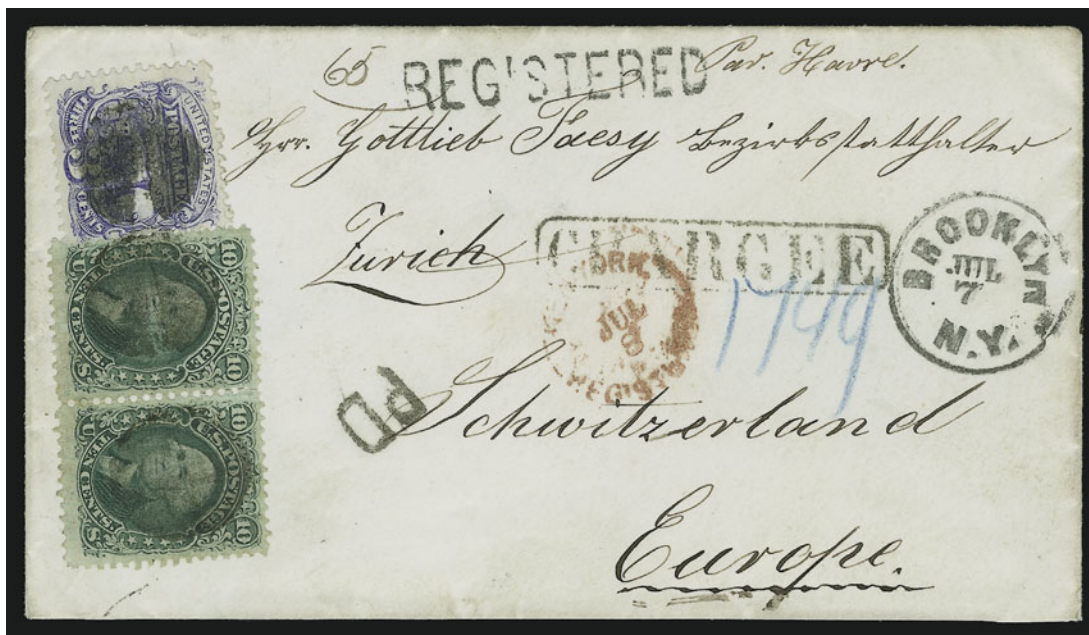 65 REGISTERED Par. Havre.
Hrr. Gottlieb Faesy Bezirksstatthalter
Zurich
CHARGEE
BROOKLYN
JUL
7
N.Y.
YORK
JUL
8
REGIST
1749
PD
Schwitzerland
Europe.
UNITED STATES
POSTAGE
THREE CENTS
10 U.S. POSTAGE 10
TEN CENTS
U S
10 U.S. POSTAGE 10
TEN CENTS
U S